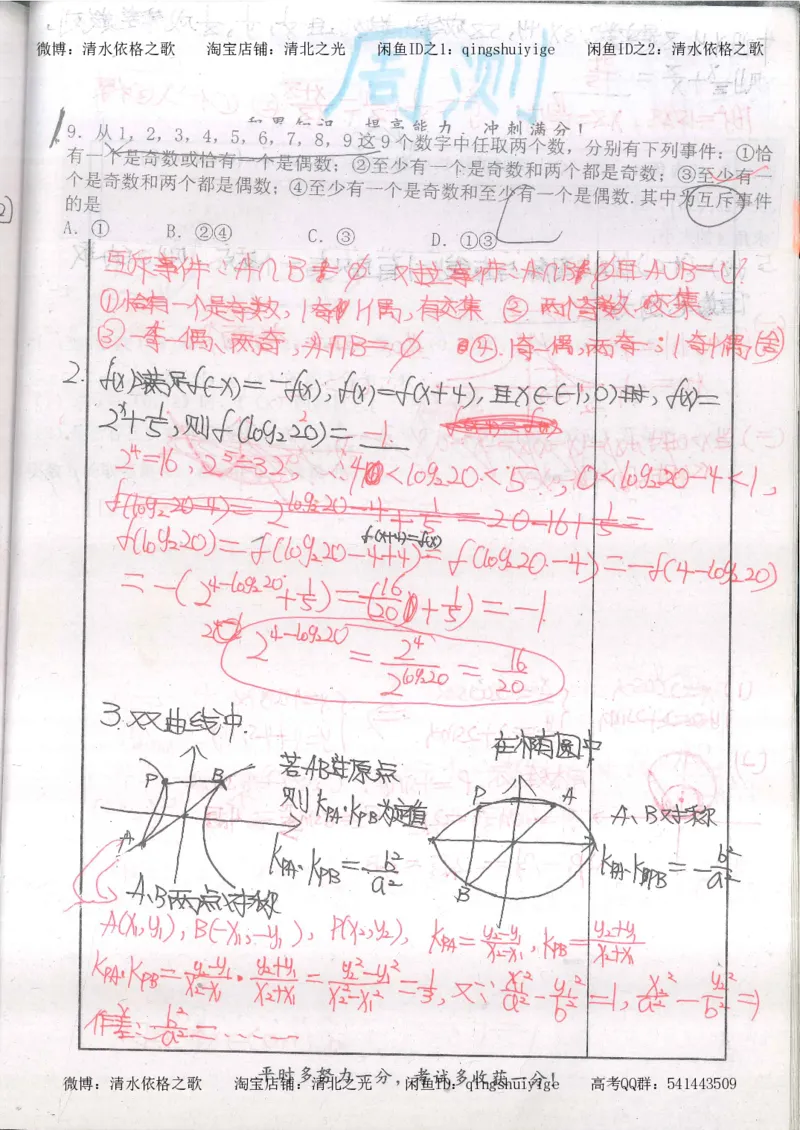 微博：清水依格之歌 淘宝店铺：清北之光 闲鱼ID之1：qingshuiyige 闲鱼ID之2：清水依格之歌
周测
积累知识，提高能力，冲刺满分！
1
9．从1，2，3，4，5，6，7，8，9这9个数字中任取两个数，分别有下列事件：①恰
有一个是奇数或恰有一个是偶数；②至少有一个是奇数和两个都是奇数；③至少有一
个是奇数和两个都是偶数；④至少有一个是奇数和至少有一个是偶数.其中为互斥事件
的是
A．① B．②④ C．③ D．①③
互斥事件：A∩B=∅ 对立事件：A∩B=∅且A∪B=U
①恰有一个是奇数，1奇1偶，有交集 ② 两个奇数.交集
③.一奇一偶、两奇，A∩B=∅ ④.1奇一偶，两奇；1奇1偶
2. f(x)满足f(-x)=-f(x), f(x)=f(x+4), 且x∈(-1,0)时, f(x)=
2^x+1/5, 则f(log₂20)= -1.
2⁴=16, 2⁵=32, ∴4<log₂20<5, 0<log₂20-4<1,
f(log₂20-4)=2^(log₂20-4)+1/5=20-16+1/5=
f(x+4)=f(x)
f(log₂20)=f(log₂20-4+4)=f(log₂20-4)=-f(4-log₂20)
=-(2^(4-log₂20)+1/5)=-(16/20+1/5)=-1.
2^(4-log₂20)=2⁴/2^(log₂20)=16/20
3.双曲线中.
在椭圆中
P B
若AB过原点
则k_PA·k_PB为定值
P A
A、B对称
A
k_PA·k_PB=b²/a²
B
k_PA·k_PB=-b²/a²
A、B两点对称
A(x₁,y₁), B(-x₁,-y₁), P(x₂,y₂), k_PA=(y₂-y₁)/(x₂-x₁), k_PB=(y₂+y₁)/(x₂+x₁)
k_PA·k_PB=(y₂-y₁)/(x₂-x₁)·(y₂+y₁)/(x₂+x₁)=(y₂²-y₁²)/(x₂²-x₁²)=1/3, 又∵x₁²/a²-y₁²/b²=1, x₂²/a²-y₂²/b²=1
作差：b²/a²=......
平时多努力一分，考试多收获一分！
微博：清水依格之歌 淘宝店铺：清北之光 闲鱼ID：qingshuiyige 高考QQ群：541443509